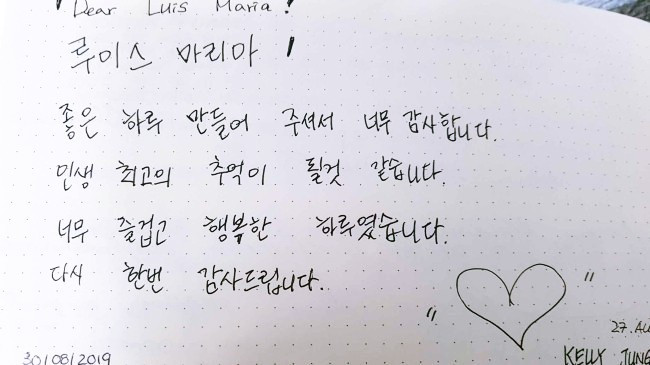 Dear Luis Maria!
루이스 마리아!
좋은 하루 만들어 주셔서 너무 감사합니다.
인생 최고의 추억이 될것 같습니다.
너무 즐겁고 행복한 하루였습니다.
다시 한번 감사드립니다.
27. AU
30/08/2019 KELLY JUNG